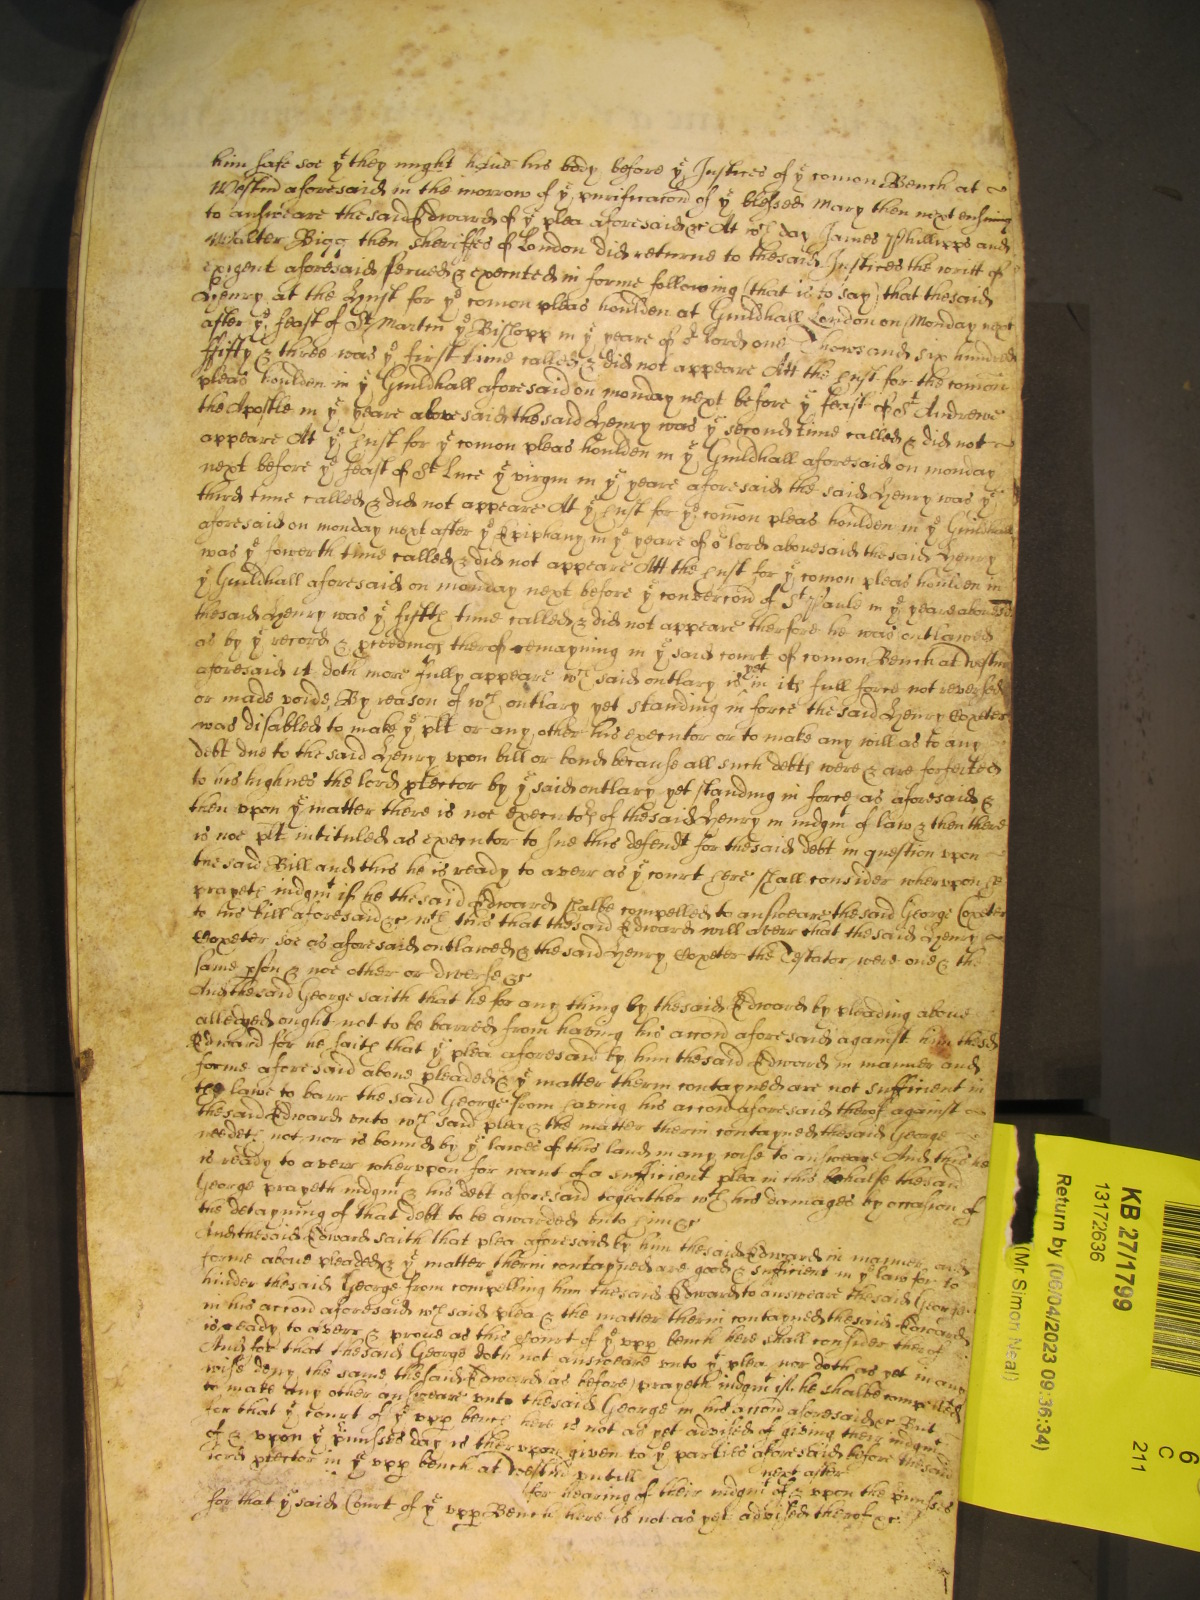 him safe soe yt they might have his body before ye Justices of ye comon Bench at
Westm aforesaid in the morrow of ye purificacon of ye blessed Mary then next ensuing
to answeare the said Edward of ye plea aforesaid &c At wch day James Phillipps and
Walter Bigg then sheriffes of London did returne to the said Justices the writt of
exigent aforesaid served & executed in forme following (that is to say) that the said
Henry at the Hust for ye comon pleas houlden at Guildhall London on Monday next
after ye feast of St Martin ye Bishopp in ye yeare of or lord one Thowsand six hundred
fifty & three was ye first time called & did not appeare Att the Hust for the comon
pleas houlden in ye Guildhall aforesaid on monday next before ye feast of St Andrewe
the Apostle in ye yeare above said the said Henry was ye second time called & did not
appeare At ye Hust for ye comon pleas houlden in ye Guildhall aforesaid on monday
next before ye feast of St Luce ye virgin in ye yeare aforesaid the said Henry was ye
third time called & did not appeare At ye Hust for ye comon pleas houlden in ye Guildhall
aforesaid on monday next after ye Epiphany in ye yeare of or lord abovesaid the said Henry
was ye fowerth time called & did not appeare Att the Hust for ye comon pleas houlden in
ye Guildhall aforesaid on monday next before ye convercon of St Paule in ye yeare abovesd
the said Henry was ye fifth time called & did not appeare therfore he was outlawed
as by ye record & pceedings therof remayning in ye said court of comon Bench at Westmr
aforesaid it doth more fully appeare wch said outlary is yet in its full force not reversed
or made voide, By reason of wch outlary yet standing in force the said Henry Coxeter
was disabled to make ye plt or any other his executor or to make any will as to any
debt due to the said Henry upon bill or bond because all such debts were & are forfeited
to his highnes the lord ptector by ye said outlary yet standing in force as aforesaid &
then upon ye matter there is not executor of the said Henry in iudgmt of law & then there
is noe plt intituled as executor to sue this defendt for the said debt in question upon
the said Bill and this he is ready to averr as ye court here shall consider wherupon he
prayeth iudgmt if he the said Edward shalbe compelled to answeare the said George Coxeter
to his bill aforesaid &c wth this that the said Edward will averr that the said Henry
Coxeter soe as aforesaid outlawed & the said Henry Coxeter the Testator were one & the
same pson & not other or diverse &c
And the said George saith that he for any thing by the said Edward by pleading above
alledged ought not to be barred from having his accon aforesaid against him the sd
Edward for he saith that ye plea aforesaid by him the said Edward in manner and
forme aforesaid above pleaded & ye matter therin contayned are not sufficient in
the lawe to barr the said George from having his accon aforesaid therof against
the said Edward unto wch said plea & the matter therin contayned the said George
needeth not nor is bound by ye lawes of this land in any wise to answeare And this he
is ready to averr wherupon for want of a sufficient plea in this behalfe the said
George prayeth iudgmt & his debt aforesaid togeather wth his damages by occasion of
the detayning of that debt to be awarded unto him &c
And the said Edward saith that plea aforesaid by him the said Edward in manner and
forme above pleaded & ye matter therin contayned are good & sufficient in ye law for to
hinder the said George from compelling him the said Edward to answeare the said George
in his accon aforesaid wch said plea & the matter therin contayned the said Edward
is ready to averr & prove as this Court of ye upp bench here shall consider therof
And for that the said George doth not answeare unto ye plea nor doth as yet in any
wise deny the same the said Edward as before prayeth iudgmt if he shalbe compelled
to make any other answeare unto the said George in his accon aforesaid &c But
for that ye court of ye upp bench here is not as yet advised of giving their iudgmt
of & upon ye pmisses day is therupon given to ye parties aforesaid before the said
lord ptector in ye upp bench at Westm untill next after
for hearing of their iudgmt of & upon the pmisses
for that ye said Court of ye upp Bench here is not as yet advised therof &c
KB 27/1799
13172636
Return by (06/04/2023 09:36:34)
(Mr Simon Neal)
6
C
211